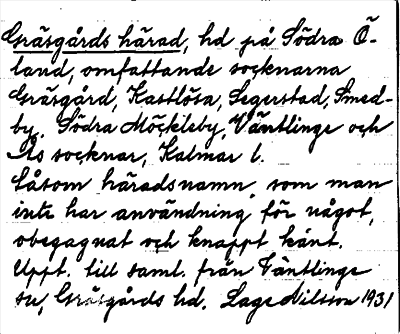 Gräsgårds härad, hd på Södra Ö-
land, omfattande socknarna
Gräsgård, Kastlösa, Segerstad, Smed-
by, Södra Möckleby, Väntlinge och
Ås socknar, Kalmar l.
Såsom häradsnamn som man
inte har användning för något,
obegagnat och knappt känt.
Uppt. till saml. från Väntlinge
sn, Gräsgårds hd. Lage Nilsson 1931